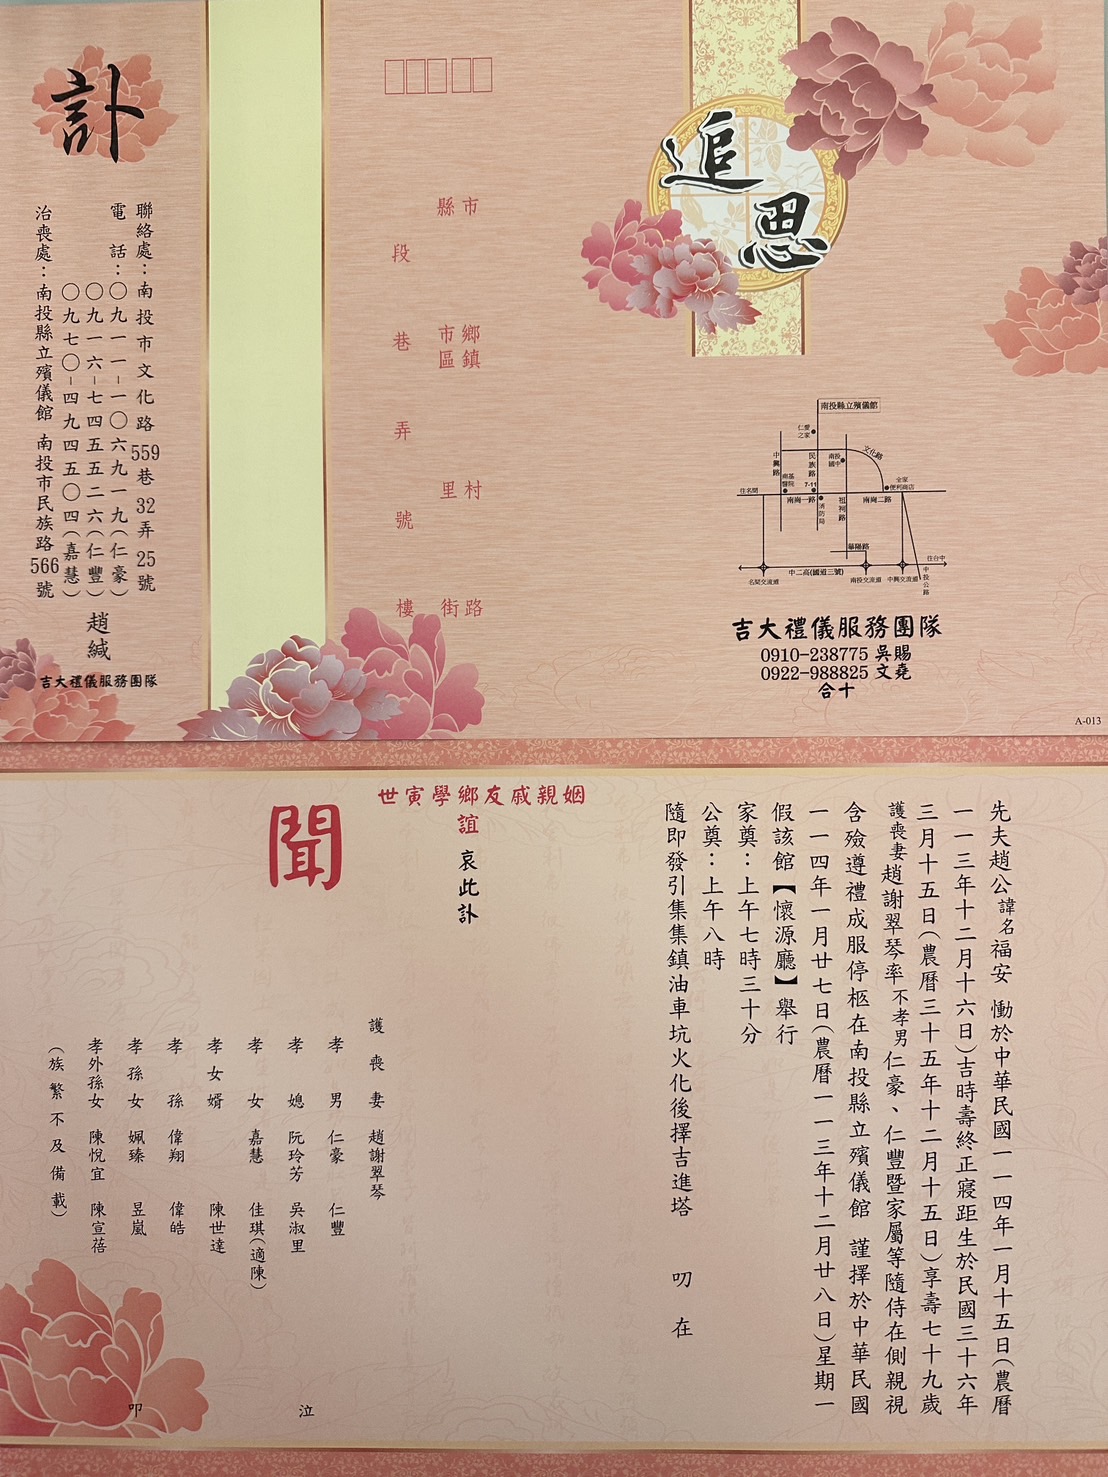 訃
聯絡處：南投市文化路559巷32弄25號
電　話：〇九一一－一〇六九一一九(仁豪)
〇九一六－七四五五二六(仁豐)
〇九七〇－四九四五〇四(嘉慧)
治喪處：南投縣立殯儀館 南投市民族路566號
趙緘
吉大禮儀服務團隊
市　鄉鎮　村　路
縣　市區　里　街
段　巷　弄　號　樓
追思
南投縣立殯儀館
仁愛之家
中興路
民族路
南投國中
文化路
南基醫院
7-11
全家便利商店
往名間
南崗一路
消防局
祖祠路
南崗二路
華陽路
往台中
中二高(國道三號)
名間交流道
南投交流道
中興交流道
中投公路
吉大禮儀服務團隊
0910-238775 吳賜
0922-988825 文堯
合十
A-013
先夫趙公諱名福安 慟於中華民國一一四年一月十五日(農曆
一一三年十二月十六日)吉時壽終正寢距生於民國三十六年
三月十五日(農曆三十五年十二月十五日)享壽七十九歲
護喪妻趙謝翠琴率不孝男仁豪、仁豐暨家屬等隨侍在側親視
含殮遵禮成服停柩在南投縣立殯儀館 謹擇於中華民國
一一四年一月廿七日(農曆一一三年十二月廿八日)星期一
假該館【懷源廳】舉行
家奠：上午七時三十分
公奠：上午八時
隨即發引集集鎮油車坑火化後擇吉進塔　叨　在
世寅學鄉友戚親姻
誼 哀此訃
聞
護　喪　妻　趙謝翠琴
孝　男　仁豪　仁豐
孝　媳　阮玲芳　吳淑里
孝　女　嘉慧　佳琪(適陳)
孝女婿　陳世達
孝　孫　偉翔　偉皓
孝孫女　姵臻　昱嵐
孝外孫女　陳悅宜　陳宣蓓
(族繁不及備載)
泣
叩